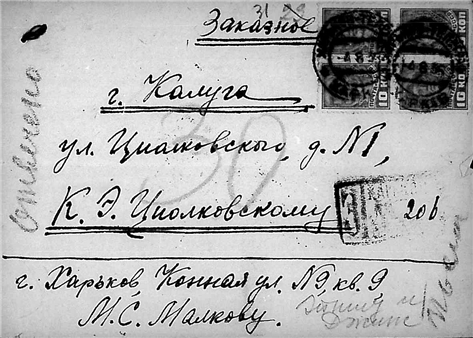 31 29
Заказное
г. Калуга
ул. Циолковского, д. №1,
К. Э. Циолковскому
30
отвечено
З
206
г. Харьков, Конная ул. №9, кв. 9
М. С. Малкову.
10 КОП
10 КОП